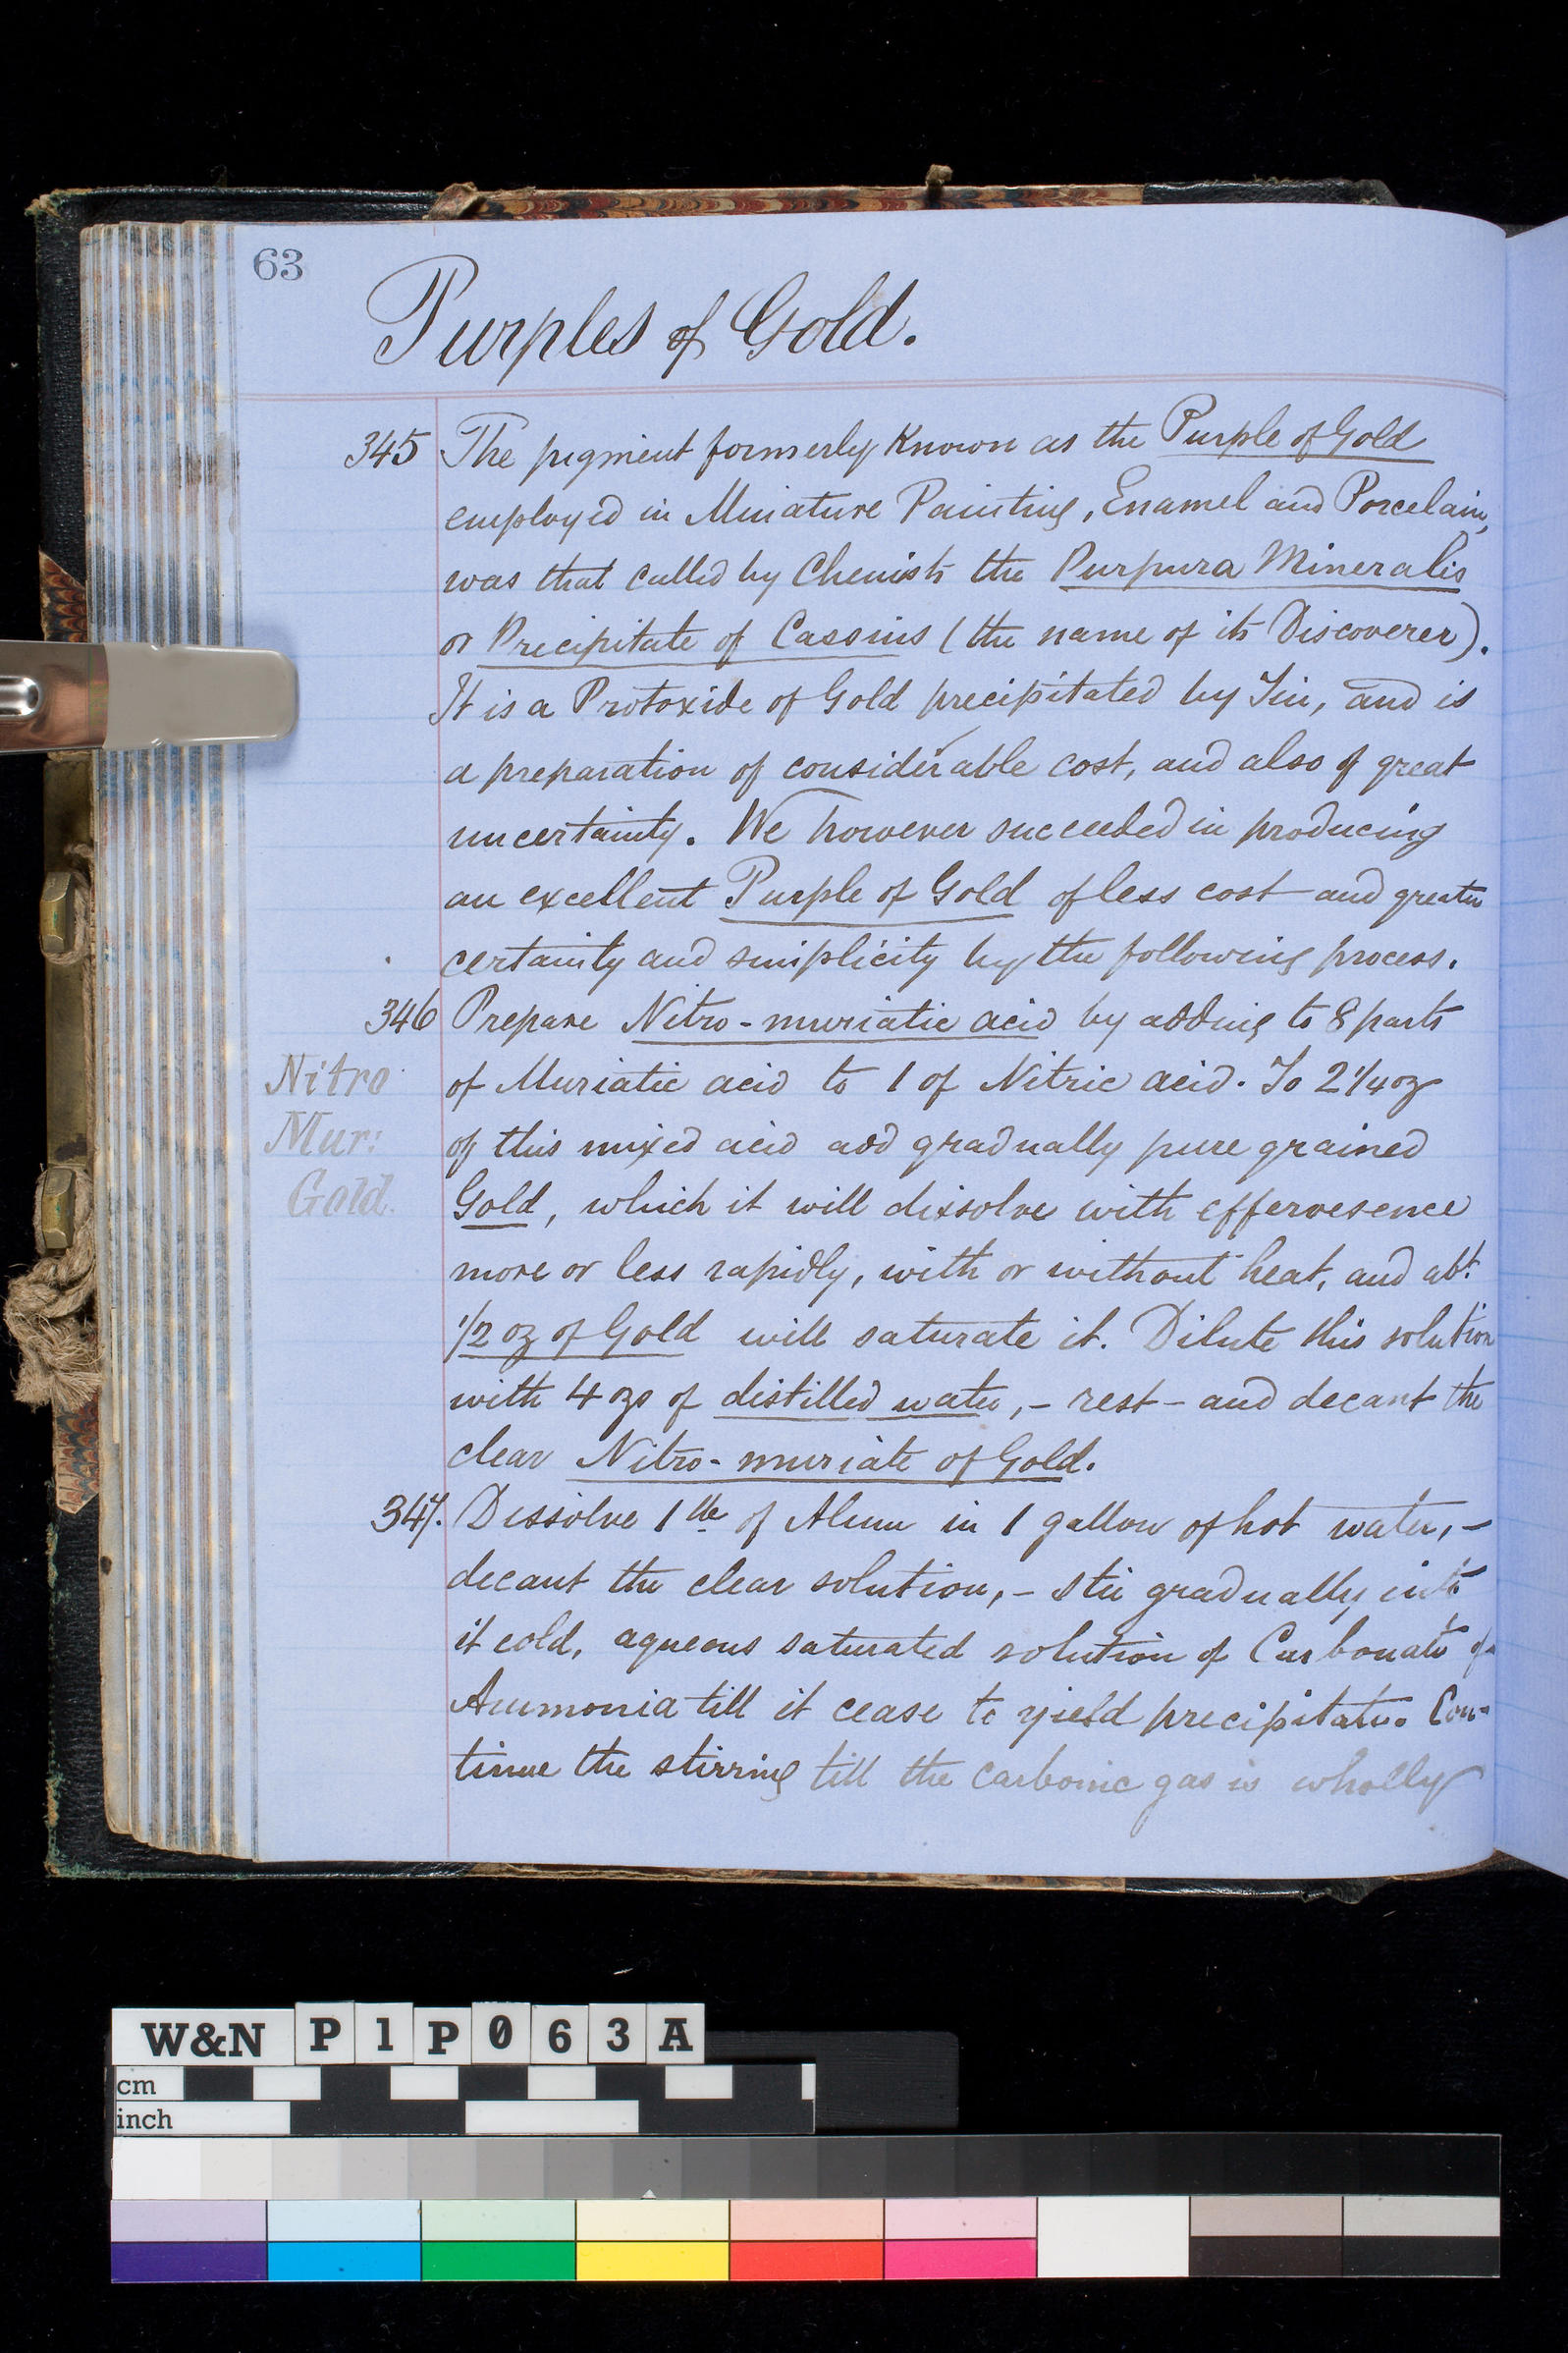 63
Purples of Gold.
345 The pigment formerly known as the Purple of Gold
employed in Miniature Painting, Enamel and Porcelain,
was that called by Chemists the Purpura Mineralis
or Precipitate of Cassius (the name of its Discoverer).
It is a Protoxide of Gold precipitated by Tin, and is
a preparation of considerable cost, and also of great
uncertainty. We however succeeded in producing
an excellent Purple of Gold of less cost and greater
certainty and simplicity by the following process.
346 Prepare Nitro-muriatic acid by adding to 8 parts
Nitro
Mur:
Gold.
of Muriatic acid to 1 of Nitric acid. To 2 1/4 oz
of this mixed acid add gradually pure grained
Gold, which it will dissolve with effervesence
more or less rapidly, with or without heat, and abt.
1/2 oz of Gold will saturate it. Dilute this solution
with 4 ozs of distilled water, - rest - and decant the
clear Nitro-muriate of Gold.
347. Dissolve 1 lb of Alum in 1 gallon of hot water, -
decant the clear solution, - stir gradually into
it cold, aqueous saturated solution of Carbonate of
Ammonia till it cease to yield precipitate. Con-
tinue the stirring till the carbonic gas is wholly
W&N P1P063A
cm
inch